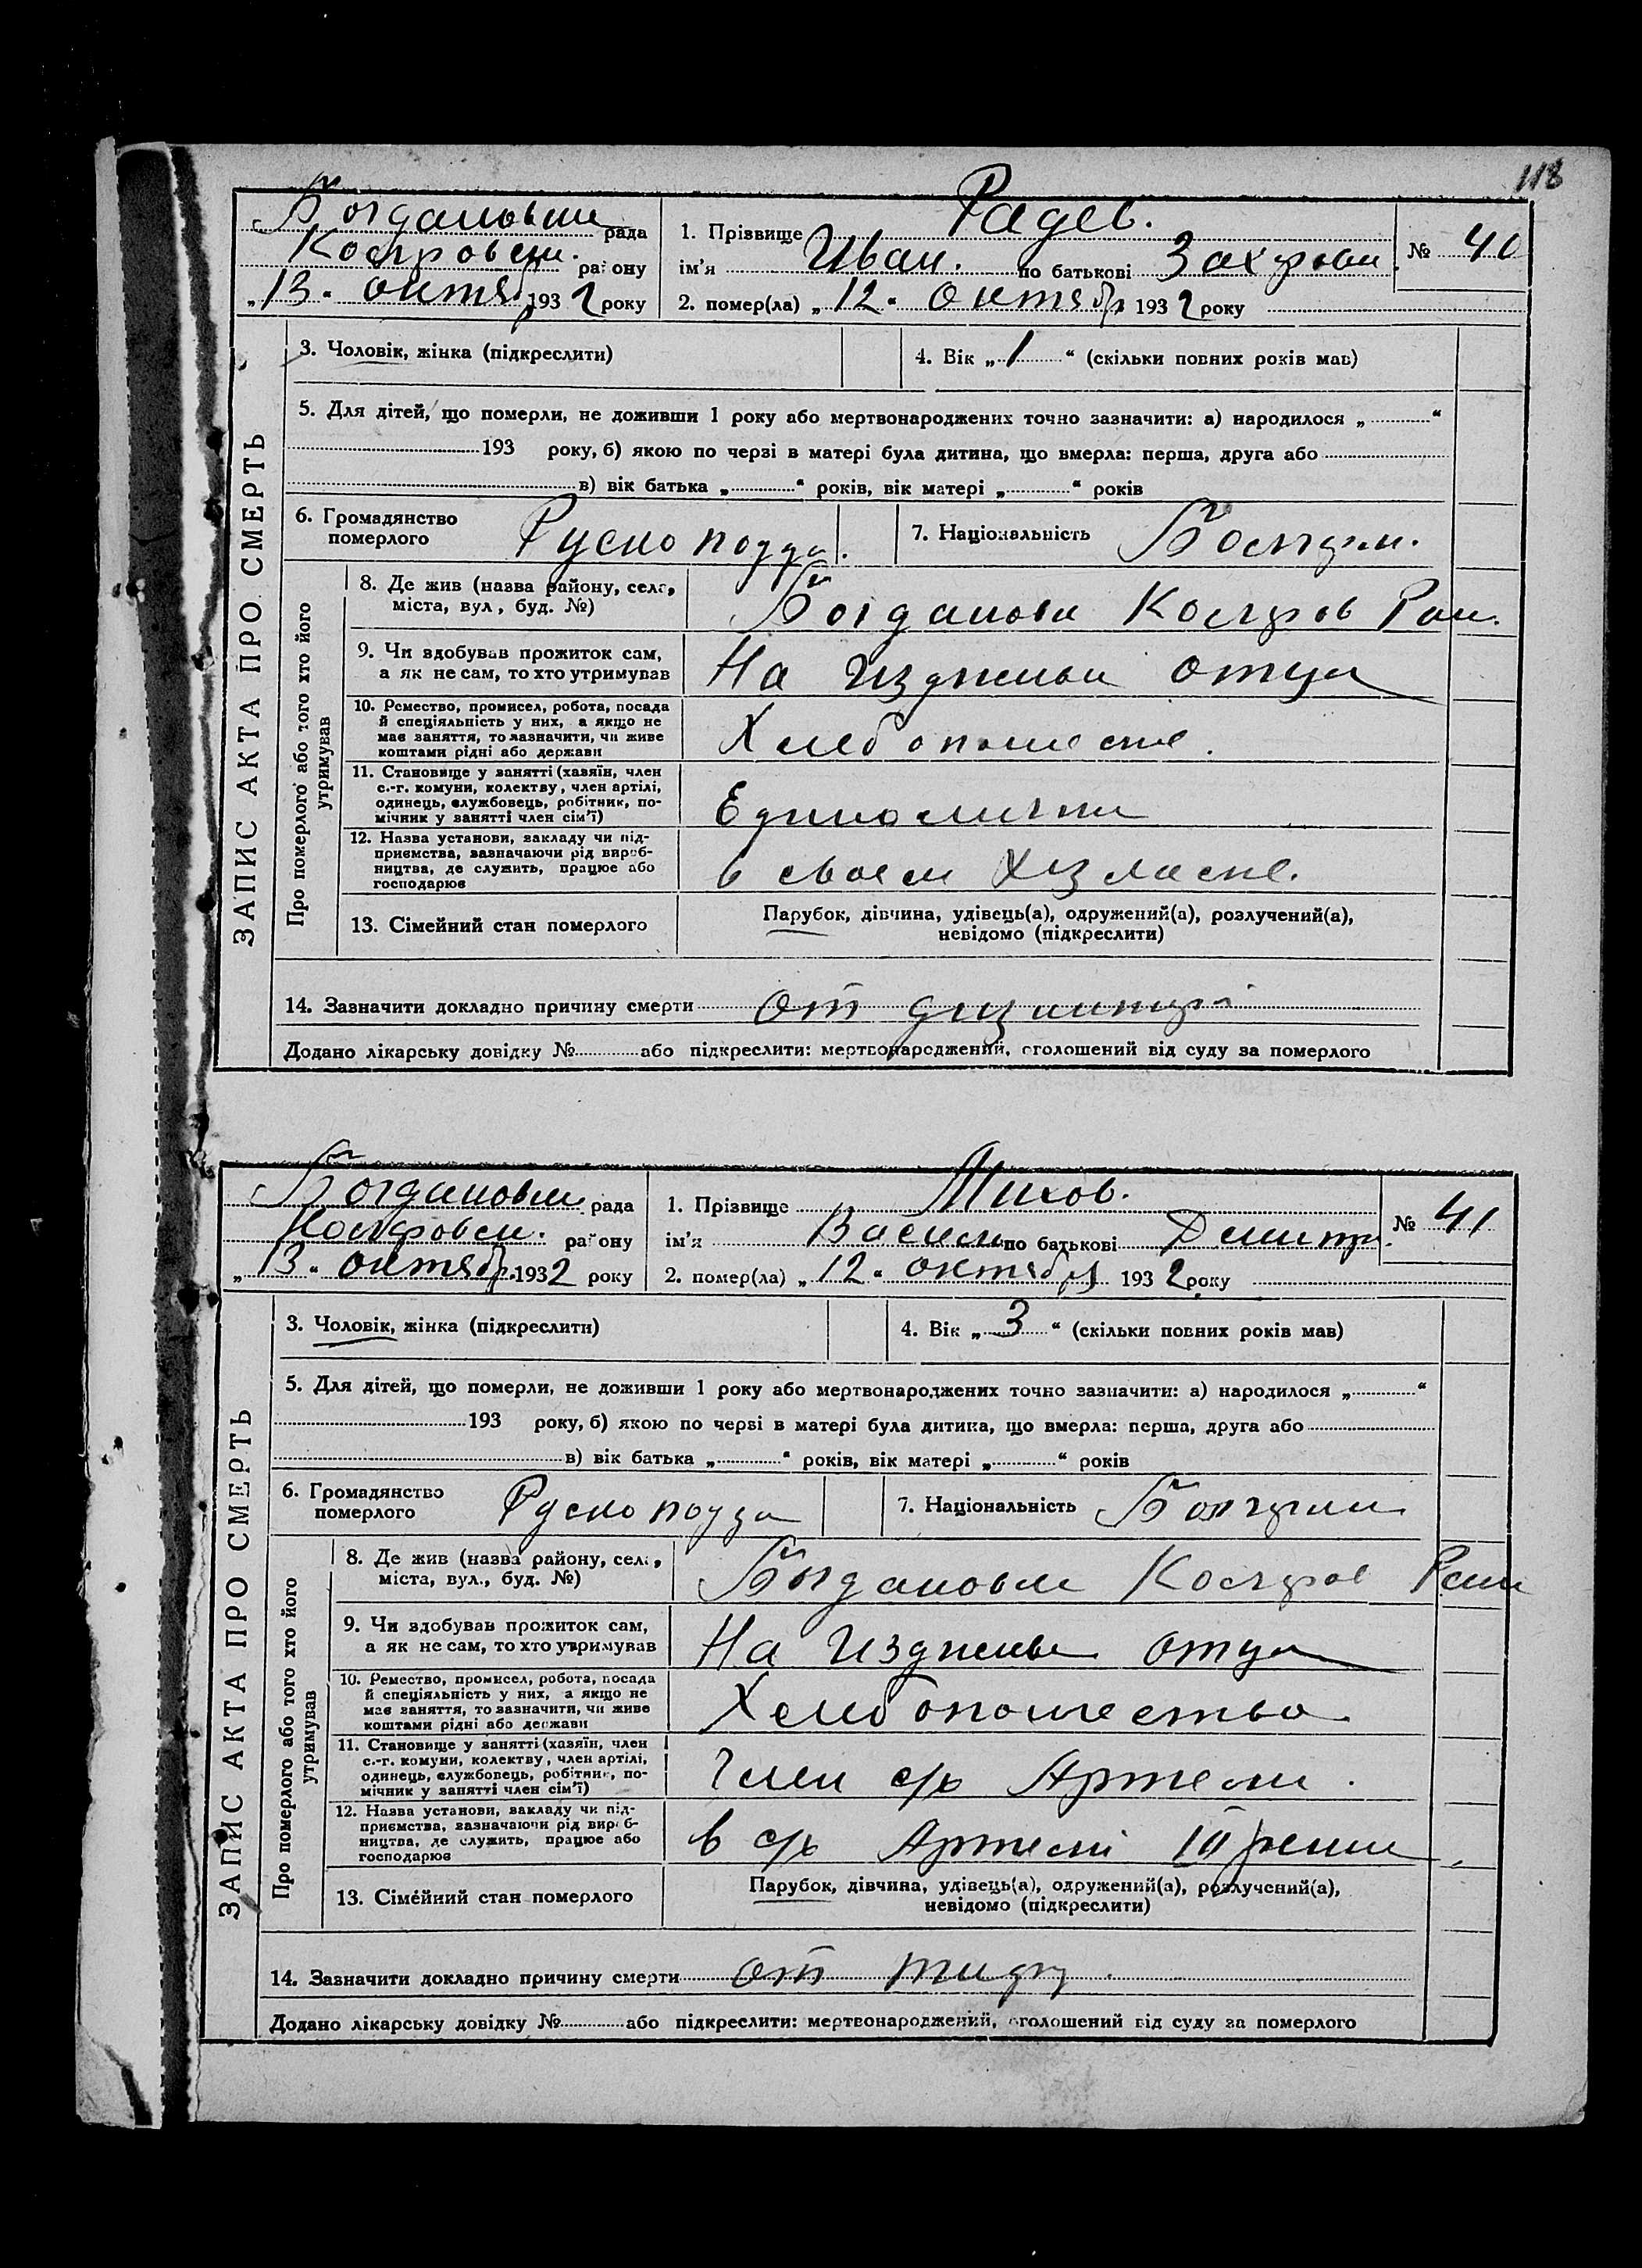 118
Богдановки рада
Коларовск. району
„13" октяб 1932 року
1. Прізвище Радев.
ім'я Иван. по батькові Захрови
2. помер(ла) „12" октябр 1932 року
№ 40
ЗАПИС АКТА ПРО СМЕРТЬ
3. Чоловік, жінка (підкреслити)
4. Вік „1" (скільки повних років мав)
5. Для дітей, що померли, не доживши 1 року або мертвонароджених точно зазначити: а) народилося „ "
193 року, б) якою по черзі в матері була дитина, що вмерла: перша, друга або
в) вік батька „ " років, вік матері „ " років
6. Громадянство
померлого
Руско подда.
7. Національність Болгри.
Про померлого або того хто його
утримував
8. Де жив (назва району, села,
міста, вул, буд. №)
Богданови Коларов Раи.
9. Чи здобував прожиток сам,
а як не сам, то хто утримував
На изджеви отца
10. Ремество, промисел, робота, посада
й спеціяльність у них, а якщо не
має заняття, то зазначити, чи живе
коштами рідні або держави
Хлебопашене.
11. Становище у занятті (хазяїн, член
с.-г. комуни, колектву, член артілі,
одинець, службовець, робітник, по-
мічник у занятті член сім'ї)
Единолични
12. Назва установи, закладу чи під-
приємства, зазначаючи рід вироб-
ництва, де служить, працює або
господарює
в своем
13. Сімейний стан померлого
Парубок, дівчина, удівець(а), одружений(а), розлучений(а),
невідомо (підкреслити)
14. Зазначити докладно причину смерти от дизинтри
Додано лікарську довідку № або підкреслити: мертвонароджений, оголошений від суду за померлого
Богдановки рада
Коларовск. району
„13" октябр. 1932 року
1. Прізвище Михов.
ім'я Василь по батькові Дмитри.
2. помер(ла) „12" октября 1932 року
№ 41
ЗАПИС АКТА ПРО СМЕРТЬ
3. Чоловік, жінка (підкреслити)
4. Вік „3" (скільки повних років мав)
5. Для дітей, що померли, не доживши 1 року або мертвонароджених точно зазначити: а) народилося „ "
193 року, б) якою по черзі в матері була дитина, що вмерла: перша, друга або
в) вік батька „ " років, вік матері „ " років
6. Громадянство
померлого
Руско подда
7. Національність Болгрин
Про померлого або того хто його
утримував
8. Де жив (назва району, села,
міста, вул., буд. №)
Богдановки Коларов Раи
9. Чи здобував прожиток сам,
а як не сам, то хто утримував
На изджеве отца
10. Ремество, промисел, робота, посада
й спеціяльність у них, а якщо не
має заняття, то зазначити, чи живе
коштами рідні або держави
Хлебопашество
11. Становище у занятті (хазяїн, член
с.-г. комуни, колектву, член артілі,
одинець, службовець, робітник, по-
мічник у занятті член сім'ї)
Член с/х Артели.
12. Назва установи, закладу чи під-
приємства, зазначаючи рід вироб-
ництва, де служить, працює або
господарює
в с/х Артели III
13. Сімейний стан померлого
Парубок, дівчина, удівець(а), одружений(а), розлучений(а),
невідомо (підкреслити)
14. Зазначити докладно причину смерти от
Додано лікарську довідку № або підкреслити: мертвонароджений, оголошений від суду за померлого